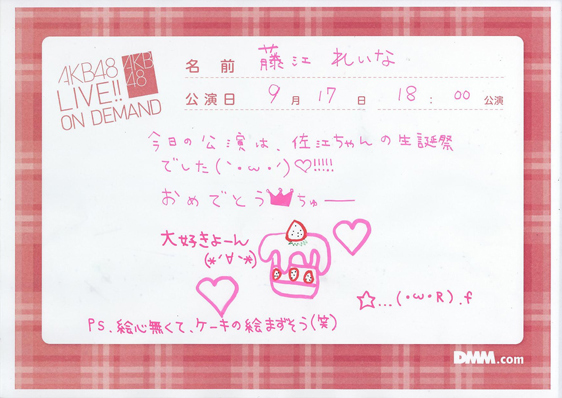 AKB48
LIVE!!
ON DEMAND
AKB
48
名前 藤江 れいな
公演日 9月17日 18:00公演
今日の公演は、佐江ちゃんの生誕祭
でした(`・ω・´)♡!!!!!
おめでとう ちゅ——
大好きよーん
(*´∀`*)
☆...(・ω・R).f
PS.絵心無くて、ケーキの絵まずそう(笑)
DMM.com